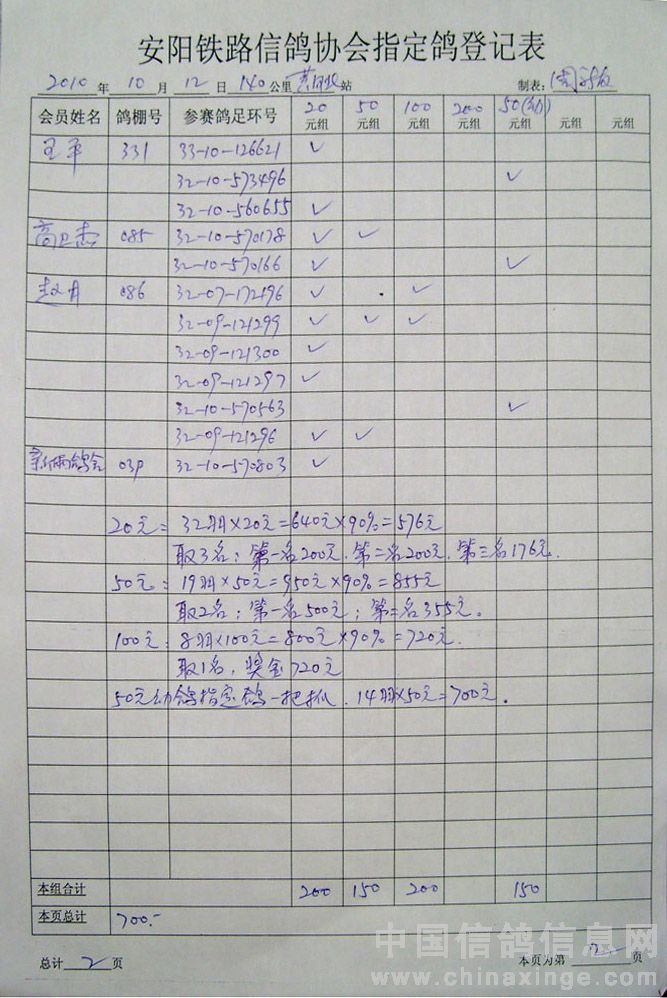 安阳铁路信鸽协会指定鸽登记表
2010 年 10 月 12 日 140 公里 站 制表:
会员姓名 鸽棚号 参赛鸽足环号 20元组 50元组 100元组 200元组 50(幼)元组 元组 元组
王平 331 33-10-126621 ✓
32-10-573496 ✓
32-10-560655 ✓
高卫杰 085 32-10-570178 ✓ ✓
32-10-570166 ✓ ✓
赵月 086 32-07-172196 ✓ ✓
32-09-121299 ✓ ✓ ✓
32-09-121300 ✓
32-09-121297 ✓
32-10-570563 ✓
32-09-121296 ✓ ✓
鸽舍 039 32-10-570803 ✓
20元: 32羽×20元=640元×90%=576元
取3名: 第一名200元. 第二名200元. 第三名176元.
50元: 19羽×50元=950元×90%=855元
取2名: 第一名500元; 第二名355元。
100元: 8羽×100元=800元×90%=720元.
取1名, 奖金720元
50元幼鸽指定鸽一把抓. 14羽×50元=700元.
本组合计 200 150 200 150
本页总计 700.-
总计 2 页 本页为第 2 页
中国信鸽信息网
www.chinaxinge.com